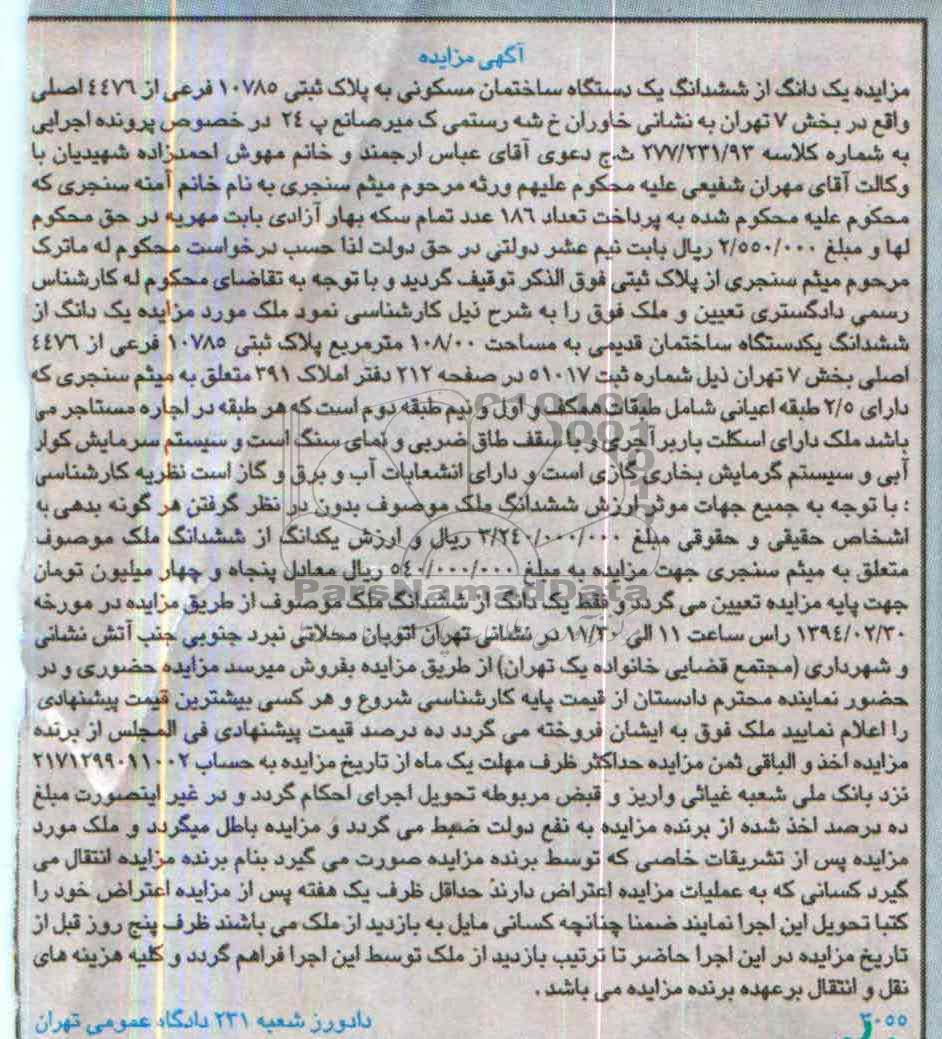 آگهی مزایده
مزایده یک دانگ از ششدانگ یک دستگاه ساختمان مسکونی به پلاک ثبتی ۱۰۷۸۵ فرعی از ٤٤٧٦ اصلی
واقع در بخش ۷ تهران به نشانی خاوران خ شه رستمی ک میرصانع پ ٢٤ در خصوص پرونده اجرایی
به شماره کلاسه ۲۷۷/۲۳۱/۹۳ ث.ج دعوی آقای عباس ارجمند و خانم مهوش احمدزاده شهیدیان با
وکالت آقای مهران شفیعی علیه محکوم علیهم ورثه مرحوم میثم سنجری به نام خانم آمنه سنجری که
محکوم علیه محکوم شده به پرداخت تعداد ۱۸۶ عدد تمام سکه بهار آزادی بابت مهریه در حق محکوم
لها و مبلغ ۲/۵۵۰/۰۰۰ ریال بابت نیم عشر دولتی در حق دولت لذا حسب درخواست محکوم له ماترک
مرحوم میثم سنجری از پلاک ثبتی فوق الذکر توقیف گردید و با توجه به تقاضای محکوم له کارشناس
رسمی دادگستری تعیین و ملک فوق را به شرح ذیل کارشناسی نمود ملک مورد مزایده یک دانگ از
ششدانگ یکدستگاه ساختمان قدیمی به مساحت ۱۰۸/۰۰ مترمربع پلاک ثبتی ۱۰۷۸۵ فرعی از ٤٤٧٦
اصلی بخش ۷ تهران ذیل شماره ثبت ۵۱۰۱۷ در صفحه ۲۱۲ دفتر املاک ۳۹۱ متعلق به میثم سنجری که
دارای ۲/۵ طبقه اعیانی شامل طبقات همکف و اول و نیم طبقه دوم است که هر طبقه در اجاره مستاجر می
باشد ملک دارای اسکلت باربر آجری و با سقف طاق ضربی و نمای سنگ است و سیستم سرمایش کولر
آبی و سیستم گرمایش بخاری گازی است و دارای انشعابات آب و برق و گاز است نظریه کارشناسی
: با توجه به جمیع جهات موثر ارزش ششدانگ ملک موصوف بدون در نظر گرفتن هر گونه بدهی به
اشخاص حقیقی و حقوقی مبلغ ۳/۲٤۰/۰۰۰/۰۰۰ ریال و ارزش یکدانگ از ششدانگ ملک موصوف
متعلق به میثم سنجری جهت مزایده به مبلغ ۵٤۰/۰۰۰/۰۰۰ ریال معادل پنجاه و چهار میلیون تومان
جهت پایه مزایده تعیین می گردد و فقط یک دانگ از ششدانگ ملک موصوف از طریق مزایده در مورخه
۱۳۹٤/۰۲/۳۰ راس ساعت ۱۱ الی ۱۱/۳۰ در نشانی تهران اتوبان محلاتی نبرد جنوبی جنب آتش نشانی
و شهرداری (مجتمع قضایی خانواده یک تهران) از طریق مزایده بفروش میرسد مزایده حضوری و در
حضور نماینده محترم دادستان از قیمت پایه کارشناسی شروع و هر کسی بیشترین قیمت پیشنهادی
را اعلام نمایید ملک فوق به ایشان فروخته می گردد ده درصد قیمت پیشنهادی فی المجلس از برنده
مزایده اخذ و الباقی ثمن مزایده حداکثر ظرف مهلت یک ماه از تاریخ مزایده به حساب ۲۱۷۱۲۹۹۰۱۱۰۰۲
نزد بانک ملی شعبه غیاثی واریز و قبض مربوطه تحویل اجرای احکام گردد و در غیر اینصورت مبلغ
ده درصد اخذ شده از برنده مزایده به نفع دولت ضبط می گردد و مزایده باطل میگردد و ملک مورد
مزایده پس از تشریقات خاصی که توسط برنده مزایده صورت می گیرد بنام برنده مزایده انتقال می
گیرد کسانی که به عملیات مزایده اعتراض دارند حداقل ظرف یک هفته پس از مزایده اعتراض خود را
کتبا تحویل این اجرا نمایند ضمنا چنانچه کسانی مایل به بازدید از ملک می باشند ظرف پنج روز قبل از
تاریخ مزایده در این اجرا حاضر تا ترتیب بازدید از ملک توسط این اجرا فراهم گردد و کلیه هزینه های
نقل و انتقال بر عهده برنده مزایده می باشد .
دادورز شعبه ۲۳۱ دادگاه عمومی تهران
ParsNamadData